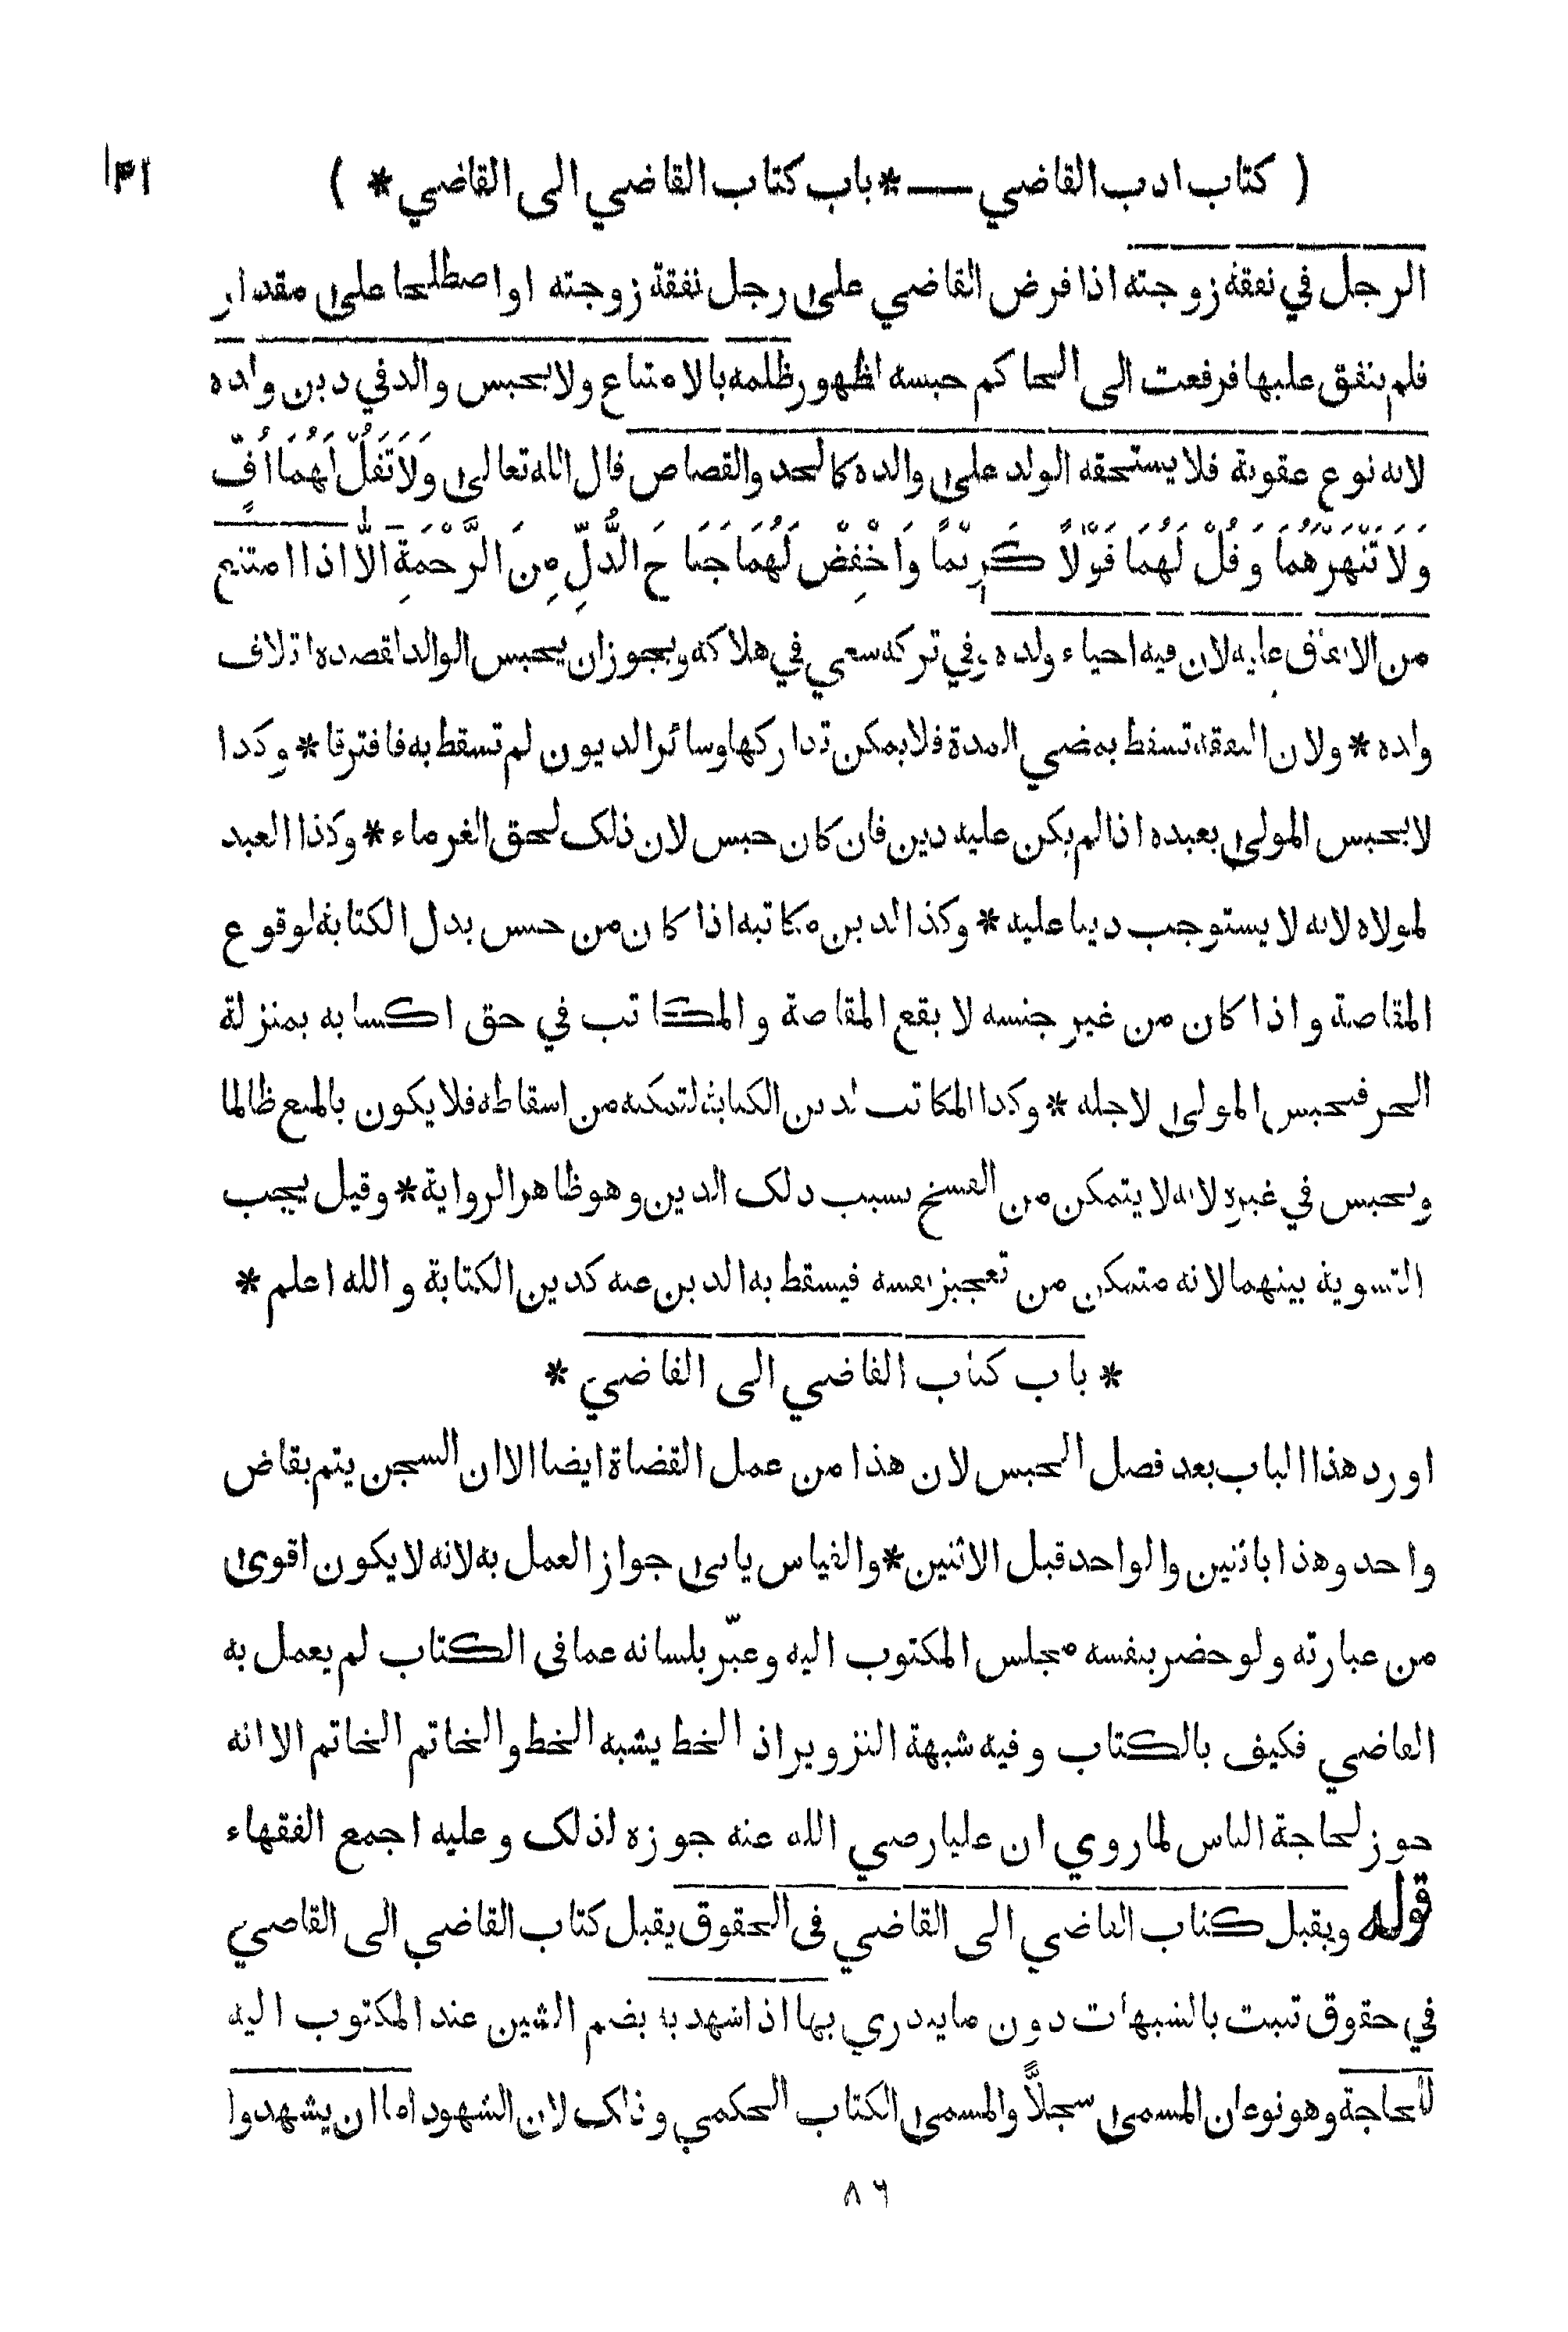 ( كتاب ادب القاضي — * باب كتاب القاضي الى القاضي * ) ٣٤١
الرجل في نفقة زوجته اذا فرض القاضي على رجل نفقة زوجته او اصطلحا على مقدار
فلم ينفق عليها فرفعت الى الحاكم حبسه لظهور ظلمه بالامتناع ولا يحبس والد في دين ولده
لانه نوع عقوبة فلا يستحقه الولد على والده كالحد والقصاص قال الله تعالى وَلَا تَقُلْ لَهُمَا اُفٍّ
وَلَا تَنْهَرْهُمَا وَقُلْ لَهُمَا قَوْلًا كَرِيْمًا وَاخْفِضْ لَهُمَا جَنَاحَ الذُّلِّ مِنَ الرَّحْمَةِ الّا اذا امتنع
من الانفاق عليه لان فيه احياء ولده وفي تركه سعي في هلاكه ويجوز ان يحبس الوالد لقصده اتلاف
ولده * ولان النفقة تسقط بمضي المدة فلا يمكن تداركها وسائر الديون لم تسقط به فافترقا * وكذا
لا يحبس المولى بعبده اذا لم يكن عليه دين فان كان حبس لان ذلك لحق الغرماء * وكذا العبد
لمولاه لانه لا يستوجب دينا عليه * وكذا لدين مكاتبه اذا كان من جنس بدل الكتابة لوقوع
المقاصة واذا كان من غير جنسه لا يقع المقاصة والمكاتب في حق اكسابه بمنزلة
الحر فيحبس المولى لاجله * وكذا المكاتب لدين الكتابة لتمكنه من اسقاطه فلا يكون بالمنع ظالما
ويحبس في غيره لانه لا يتمكن من الفسخ بسبب ذلك الدين وهو ظاهر الرواية * وقيل يجب
التسوية بينهما لانه متمكن من تعجيز نفسه فيسقط به الدين عنه كدين الكتابة والله اعلم *
* باب كتاب القاضي الى القاضي *
اورد هذا الباب بعد فصل الحبس لان هذا من عمل القضاة ايضا الا ان السجن يتم بقاض
واحد وهذا باثنين والواحد قبل الاثنين * والقياس يابى جواز العمل به لانه لا يكون اقوى
من عبارته ولو حضر بنفسه مجلس المكتوب اليه وعبّر بلسانه عما في الكتاب لم يعمل به
القاضي فكيف بالكتاب وفيه شبهة التزوير اذ الخط يشبه الخط والخاتم الخاتم الا انه
جوز لحاجة الناس لما روي ان عليا رضي الله عنه جوزه لذلك وعليه اجمع الفقهاء
قوله ويقبل كتاب القاضي الى القاضي في الحقوق يقبل كتاب القاضي الى القاضي
في حقوق تثبت بالشبهات دون ما يندري بها اذا شهد به بضم الشين عند المكتوب اليه
للحاجة وهو نوعان المسمى سجلًّا والمسمى الكتاب الحكمي وذلك لان الشهود اما ان يشهدوا
٨٦